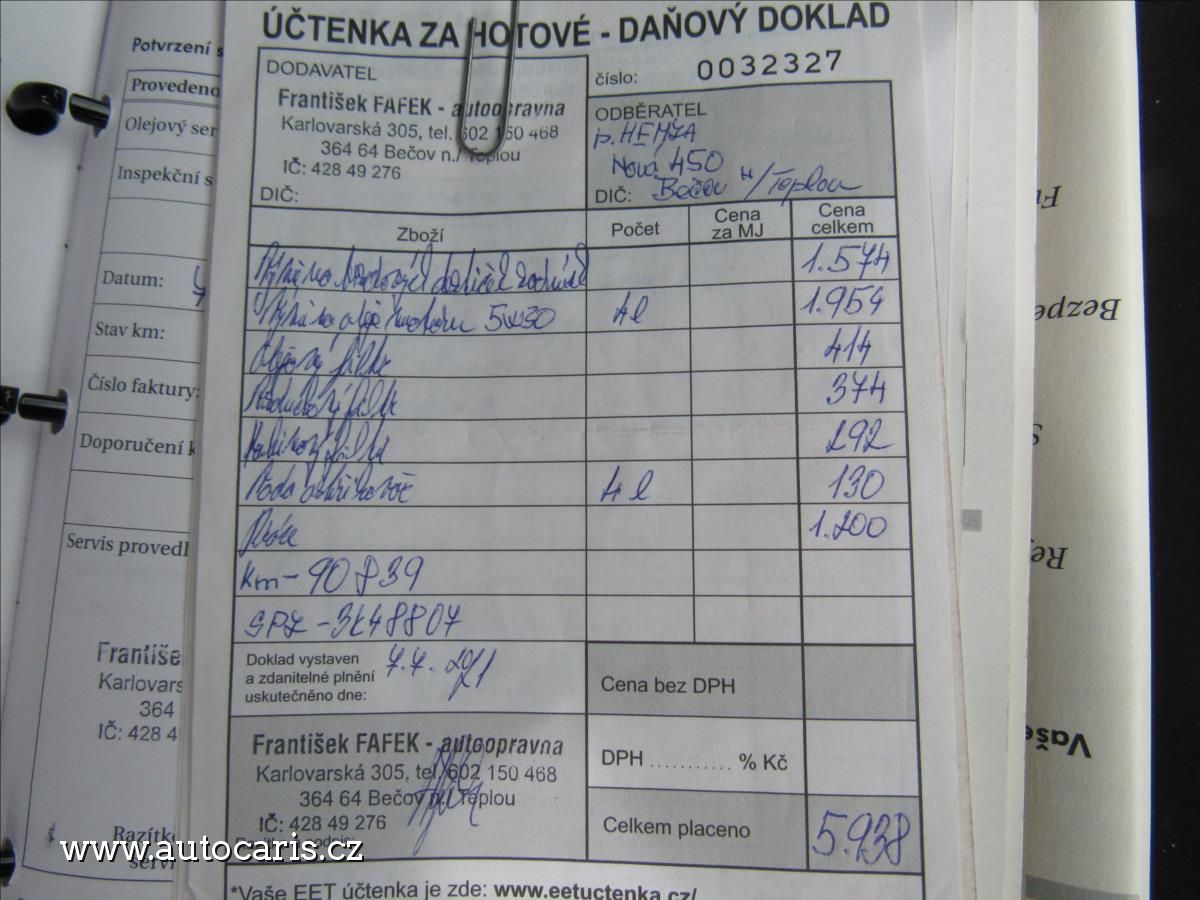 ÚČTENKA ZA HOTOVÉ - DAŇOVÝ DOKLAD
číslo: 0032327
DODAVATEL
František FAFEK - autoopravna
Karlovarská 305, tel. 602 150 468
364 64 Bečov n./Teplou
IČ: 428 49 276
DIČ:
ODBĚRATEL
p. HEMZA
Nová 450
DIČ: Bečov n/Teplou
Zboží Počet Cena za MJ Cena celkem
Výměna 1.574
Výměna oleje motoru 5W30 4l 1.954
Olejový filtr 414
filtr 374
filtr 292
Voda ostřikovač 4l 130
Práce 1.200
km - 90839
SPZ - 3K48807
Doklad vystaven
a zdanitelné plnění
uskutečněno dne:
2021
Cena bez DPH
František FAFEK - autoopravna
Karlovarská 305, tel. 602 150 468
364 64 Bečov n./Teplou
IČ: 428 49 276
DPH ........... % Kč
Celkem placeno 5.938
*Vaše EET účtenka je zde: www.eetuctenka.cz/
Potvrzení s
Provedeno
Olejový ser
Inspekční s
Datum:
Stav km:
Číslo faktury:
Doporučení k
Servis provedl
Františe
Karlovars
364
IČ: 428 4
Razítko
servi
Bezpe
Vaše
www.autocaris.cz